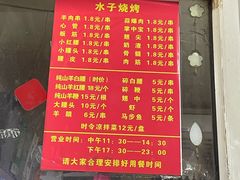 水子烧烤
羊肉串 1.8元/串
蒜爆肉 1.8元/串
心管 1.8元/串
掌中宝 1.8元/串
板筋 1.8元/串
小红腰 1.8元/串
奶渣 1.8元/串
小腰头 1.8元/串
腰皮 1.8元/串
肉筋 1.8元/串
纯山羊白腰（时价）
碎白腰 5元/串
纯山羊红腰 18元/个
碎鞭 5元/串
纯山羊鞭 15元/根
翅中 5元/个
大腰头 10元/个
虾 5元/个
羊眼 6元/串
马步鱼 5元/条
时令凉拌菜12元/盘
营业时间：中午11：30—14：30
下午17：30—23：00
请大家合理安排好用餐时间